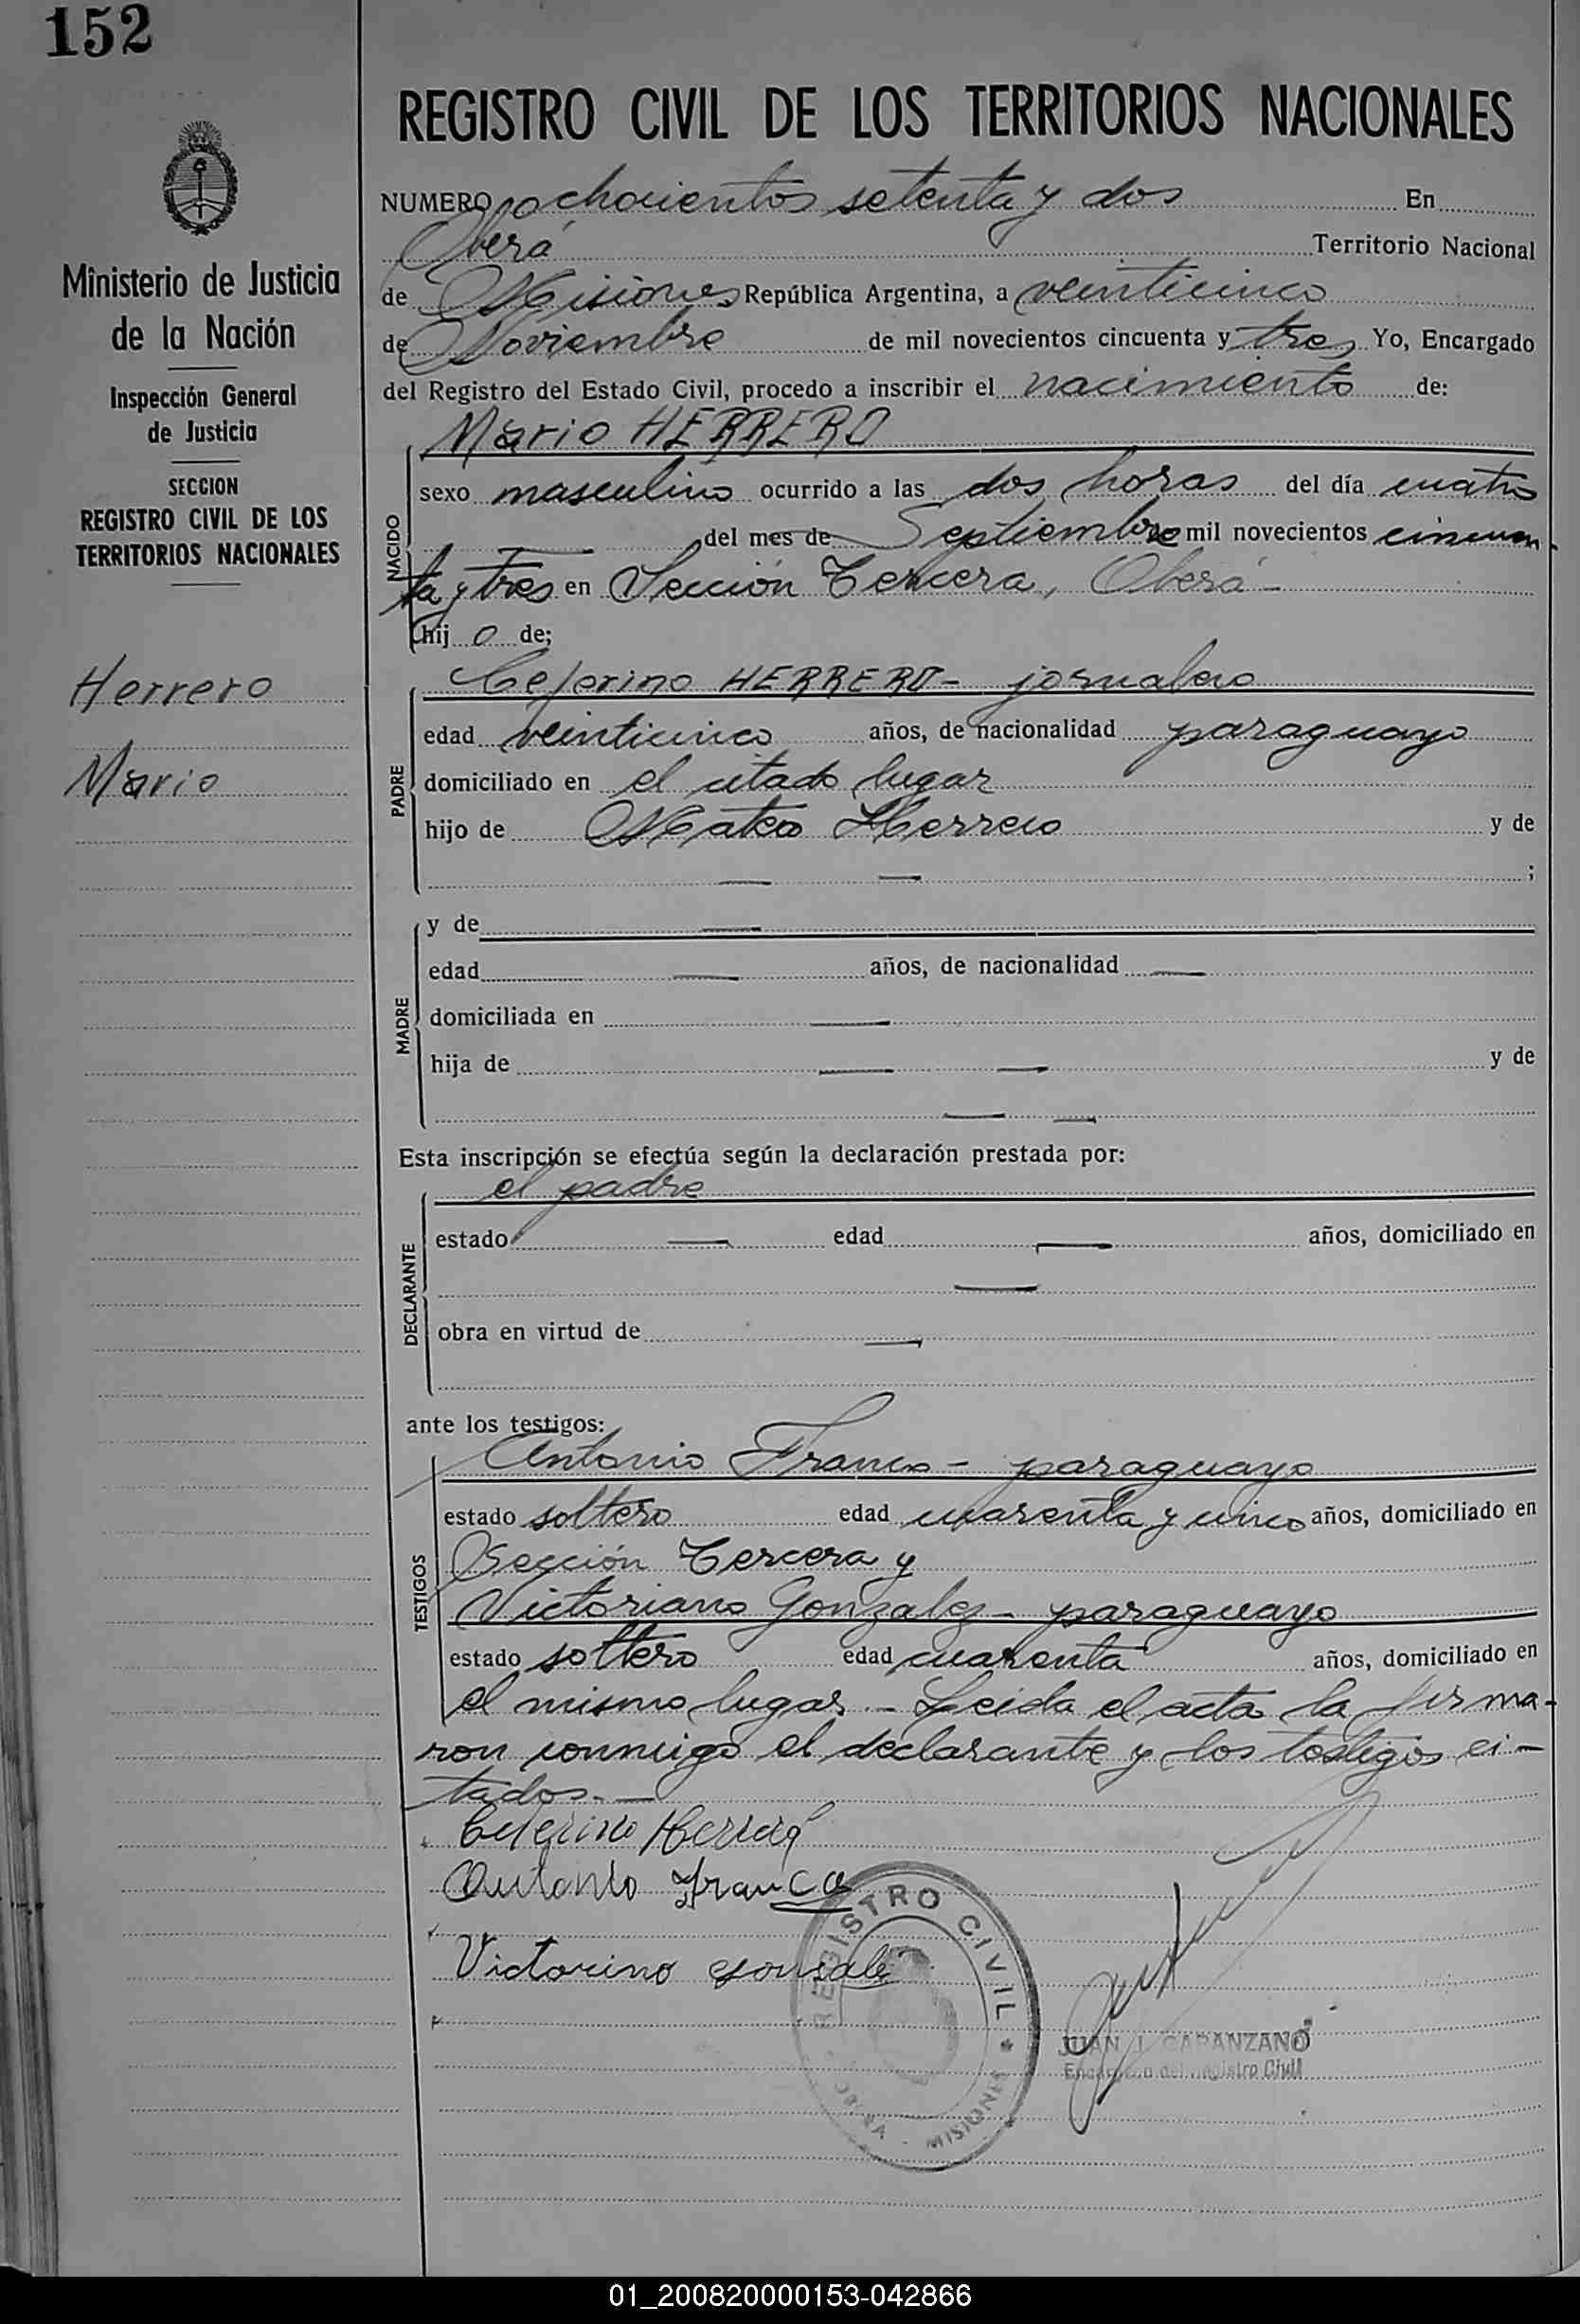 152
REGISTRO CIVIL DE LOS TERRITORIOS NACIONALES
Ministerio de Justicia
de la Nación
Inspección General
de Justicia
SECCION
REGISTRO CIVIL DE LOS
TERRITORIOS NACIONALES
Herrero
Mario
NUMERO ochocientos setenta y dos En
Oberá Territorio Nacional
de Misiones República Argentina, a veinticinco
de Noviembre de mil novecientos cincuenta y tres Yo, Encargado
del Registro del Estado Civil, procedo a inscribir el nacimiento de:
Mario HERRERO
NACIDO
sexo masculino ocurrido a las dos horas del día cuatro
del mes de Septiembre mil novecientos cincuen
ta y tres en Sección Tercera, Oberá -
hij o de;
PADRE
Ceferino HERRERO - jornalero
edad veinticinco años, de nacionalidad paraguayo
domiciliado en el citado lugar
hijo de Mateo Herrero y de
— — ;
MADRE
y de —
edad — años, de nacionalidad —
domiciliada en —
hija de — — y de
— —
Esta inscripción se efectúa según la declaración prestada por:
DECLARANTE
el padre
estado — edad — años, domiciliado en
—
obra en virtud de —
ante los testigos:
TESTIGOS
Antonio Franco - paraguayo
estado soltero edad cuarenta y cinco años, domiciliado en
Sección Tercera y
Victoriano Gonzalez - paraguayo
estado soltero edad cuarenta años, domiciliado en
el mismo lugar. - Leida el acta la firma-
ron conmigo el declarante y los testigos ci-
tados. —
Ceferino Herrera
Antonio Franco
Victorino gonsale
REGISTRO CIVIL * OBERA - MISIONES *
JUAN J. CAPANZANO
Encargado del Registro Civil
01_200820000153-042866